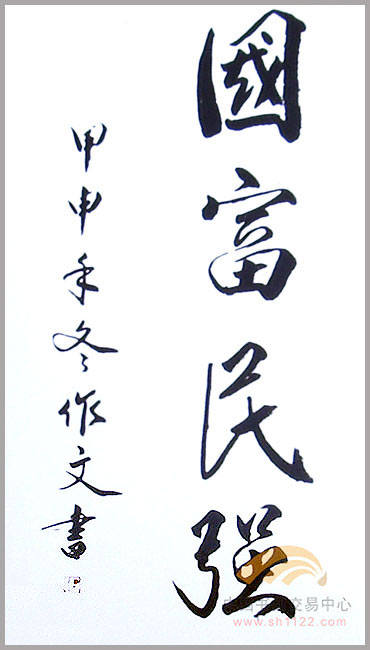 國富民強
甲申年冬作文書
交易中心
www.sh1122.com